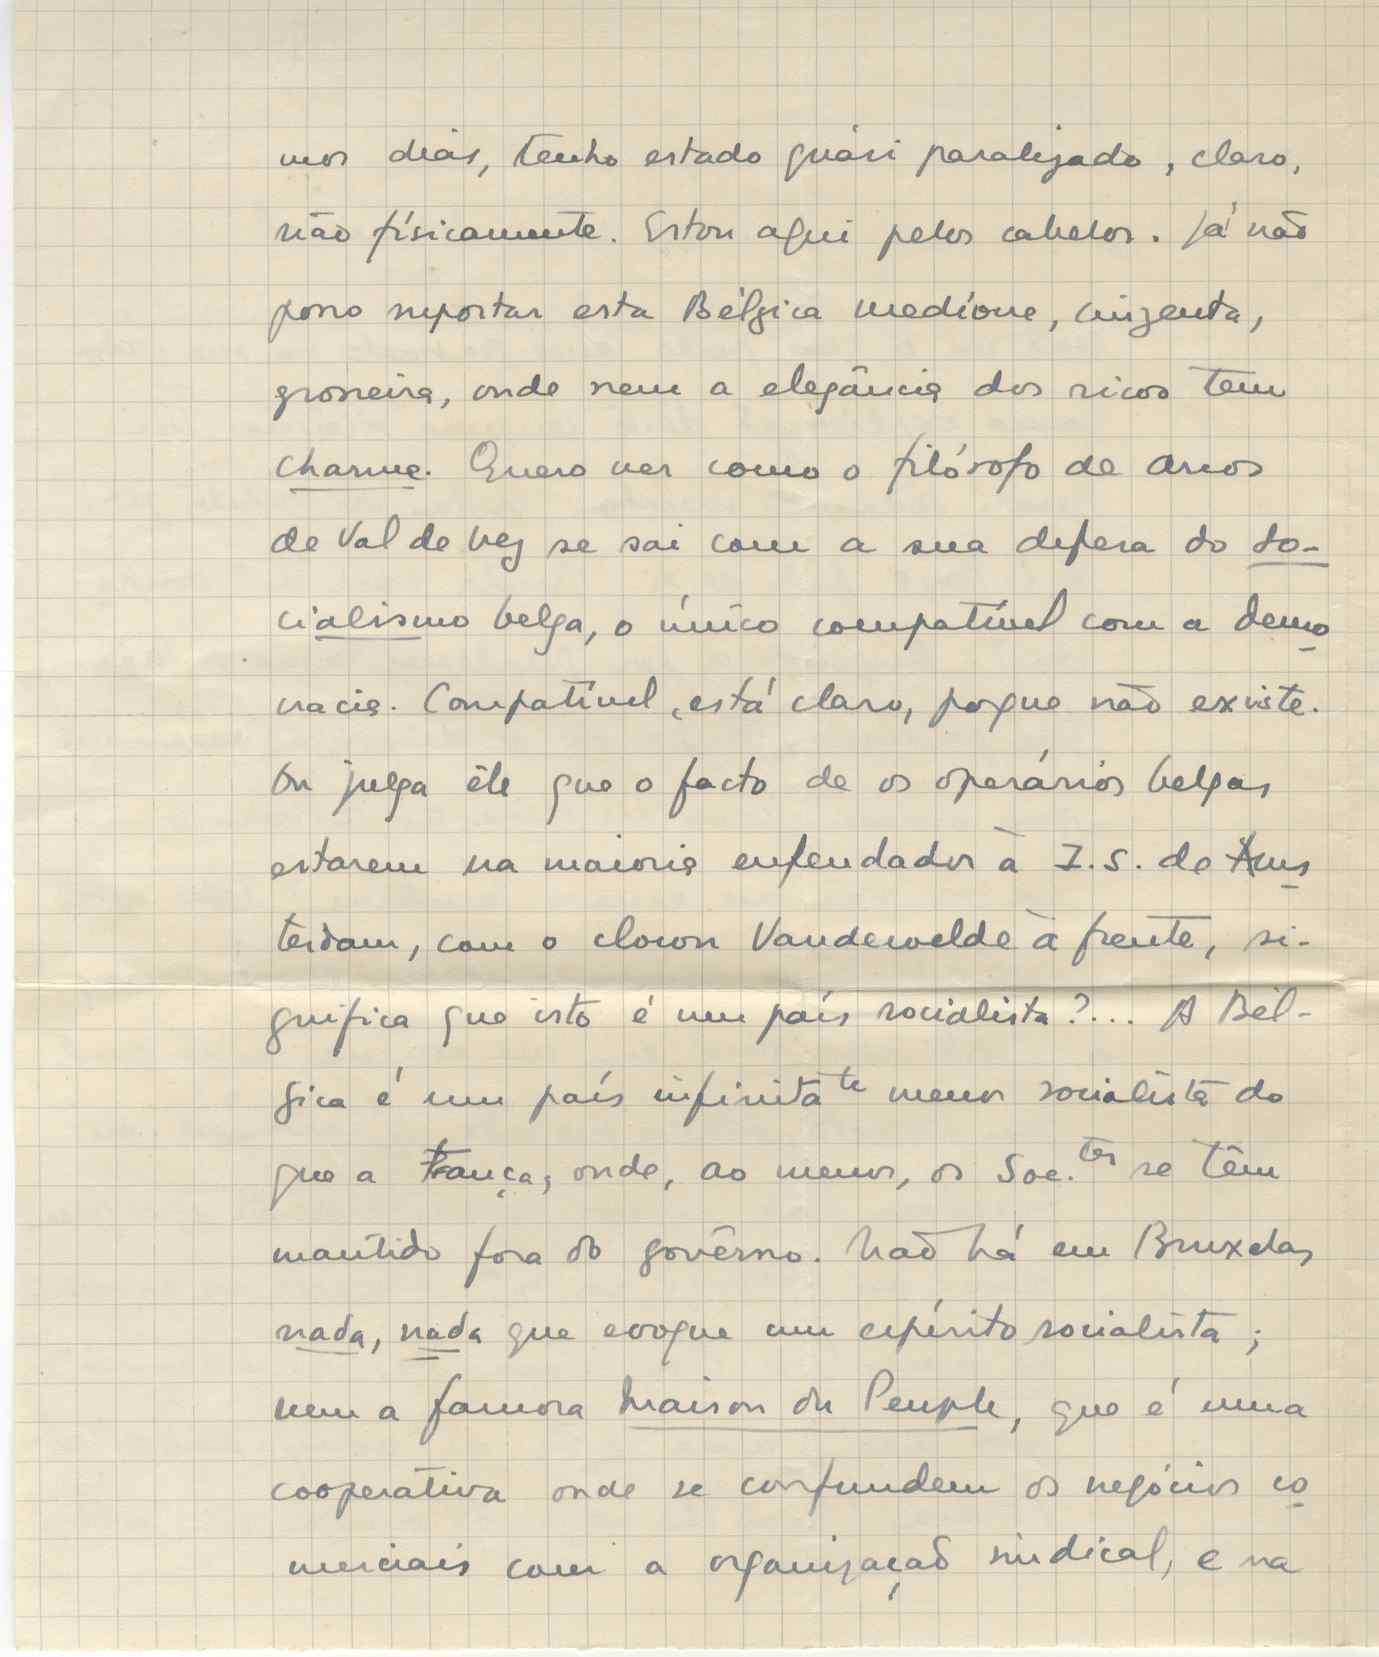 mos dias, tenho estado quási paralizado, claro,
não físicamente. Estou aqui pelos cabelos. Já não
posso suportar esta Bélgica medíocre, cinzenta,
grosseira, onde nem a elegância dos ricos tem
charme. Quero ver como o filósofo de Arcos
de Val de Vez se sai com a sua defesa do so-
cialismo belga, o único compatível com a demo
cracia. Compatível, está claro, porque não existe.
Ou julga êle que o facto de os operários belgas
estarem na maioria enfeudados à I.S. de Ams
terdam, com o clown Vandervelde à frente, si-
gnifica que isto é um país socialista?... A Bél-
gica é um país infinitate menos socialista do
que a França, onde, ao menos, os Soc.tas se têm
mantido fora do govêrno. Não há em Bruxelas
nada, nada que evoque um espírito socialista;
nem a famosa Maison du Peuple, que é uma
cooperativa onde se confundem os negócios co
merciais com a organização sindical, e na